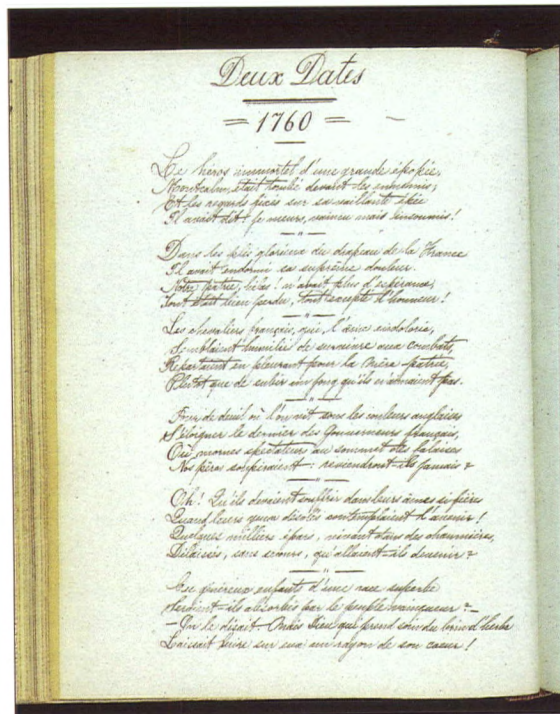 Deux Dates
= 1760 =
Le héros immortel d'une grande épopée,
Montcalm, était tombé devant les ennemis;
Et les regards fixés sur sa vaillante épée
Il avait dit: je meurs, vaincu mais insoumis!
Dans les plis glorieux du drapeau de la France
Il avait endormi sa suprême douleur.
Notre patrie, hélas! n'avait plus d'espérance,
Tout était bien perdu, tout excepté l'honneur!
Les chevaliers français, qui, l'âme endolorie,
Semblaient humiliés de survivre aux combats,
Repartaient en pleurant pour la mère patrie,
Plutôt que de subir un joug qu'ils n'aimaient pas.
Jour de deuil où l'on vit sous les couleurs anglaises
S'éloigner le dernier des Gouverneurs français,
Où, mornes spectateurs au sommet des falaises
Nos pères soupiraient: reviendront-ils jamais?
Oh! Qu'ils devaient souffrir dans leurs âmes si fières
Quand leurs yeux désolés contemplaient l'avenir!
Quelques milliers épars, vivant dans des chaumières,
Délaissés, sans secours, qu'allaient-ils devenir?
Ces généreux enfants d'une race superbe
Seraient-ils absorbés par le peuple vainqueur? –
– On le disait. Mais Dieu qui prend soin du brin d'herbe
Laissait luire sur eux un rayon de son cœur!